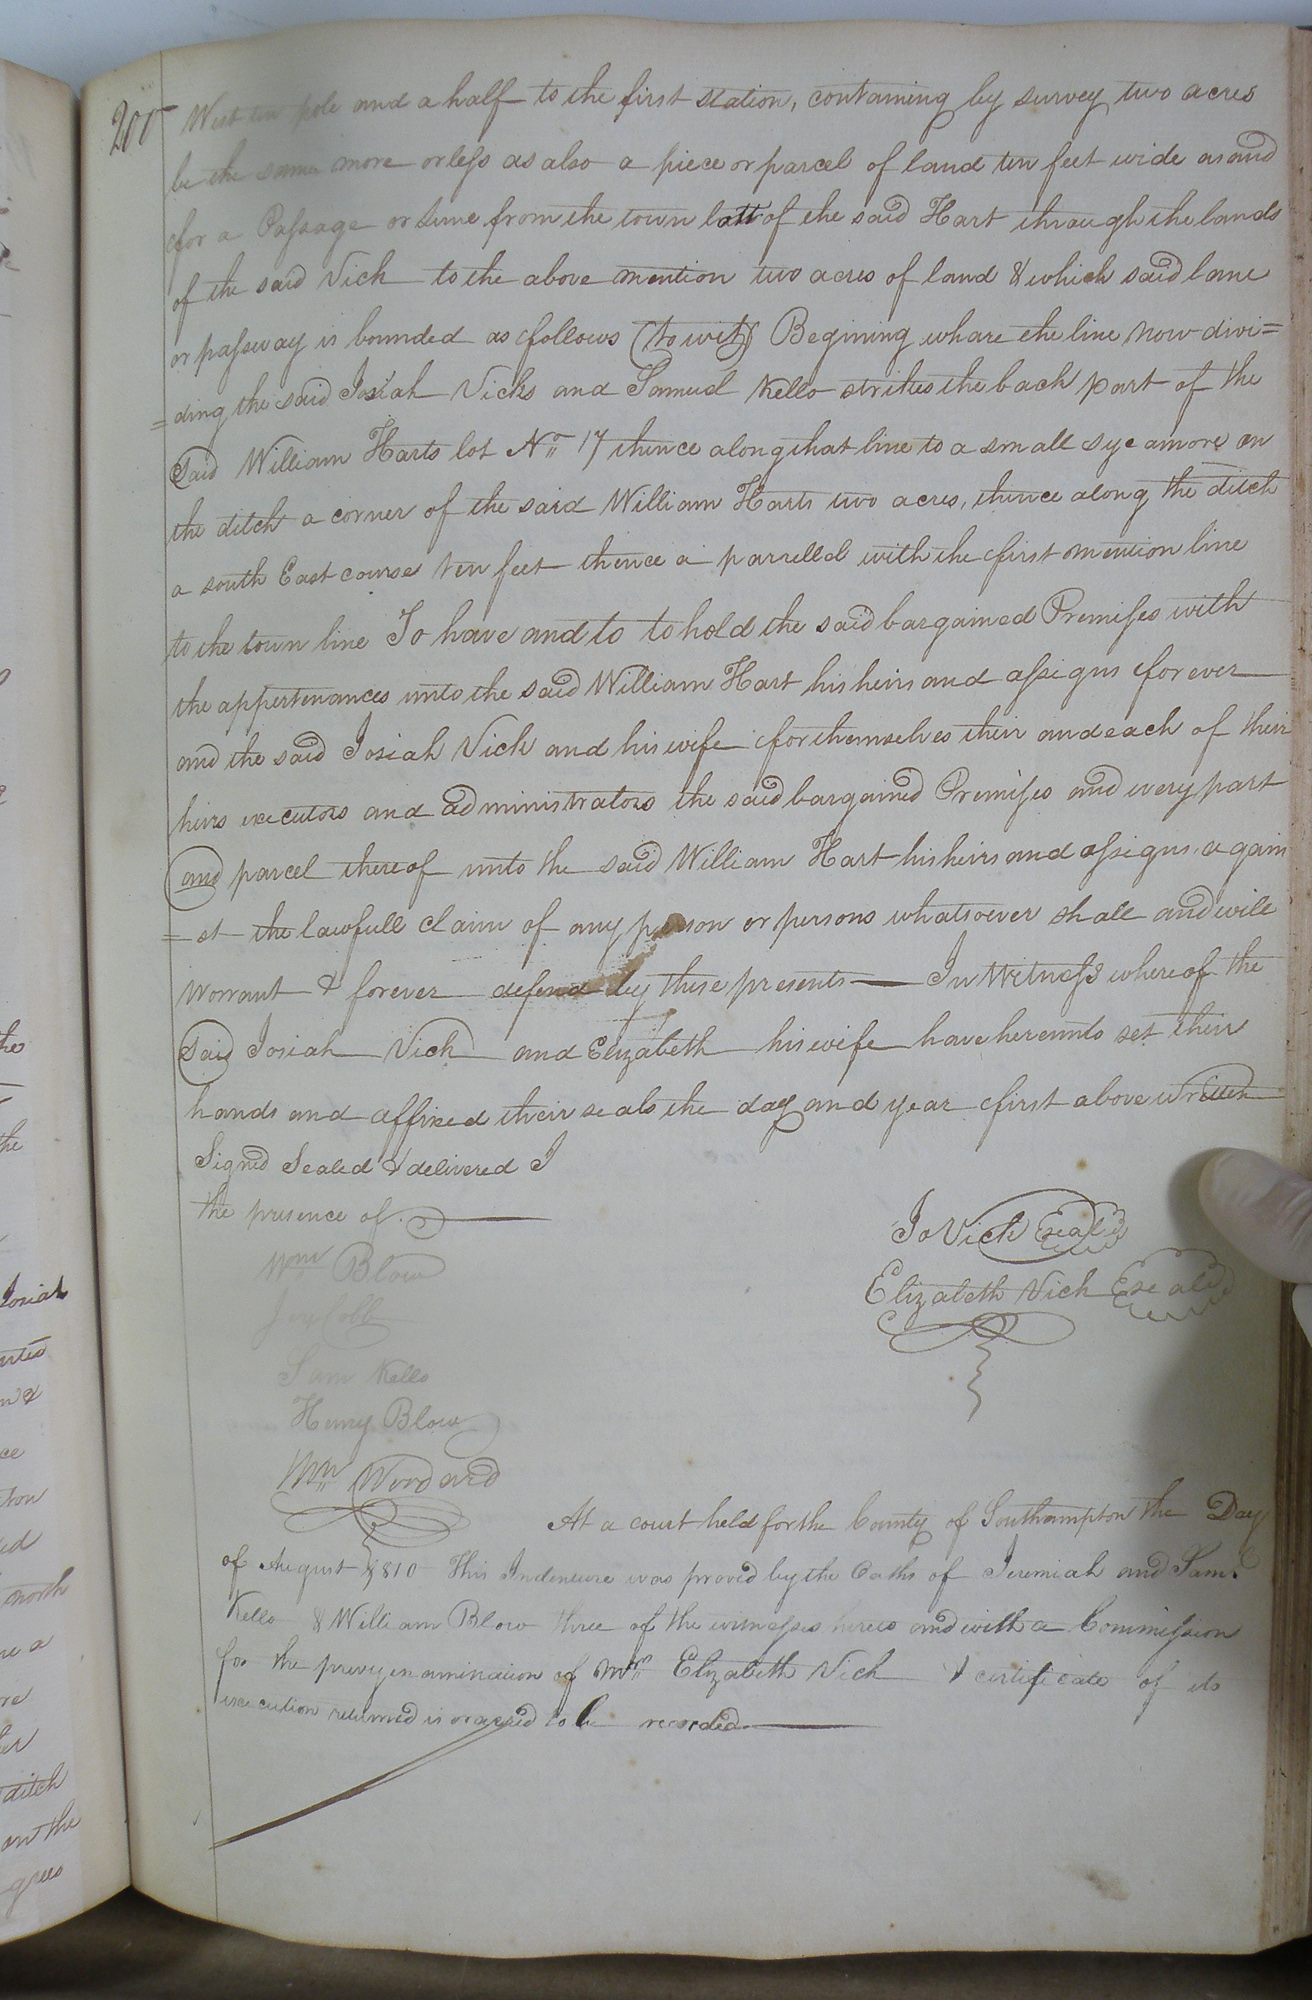 200
West ten pole and a half to the first station, containing by survey two acres
be the same more or less as also a piece or parcel of land ten feet wide as and
for a Passage or lane from the town lott of the said Hart through the lands
of the said Vick to the above mention two acres of land & which said lane
or passway is bounded as follows (to wit) Begining whare the line now divi=
=ding the said Josiah Vicks and Samuel Kello strikes the back part of the
said William Harts lot No 17 thence along that line to a small sycamore on
the ditch a corner of the said William Harts two acres, thence along the ditch
a south East course ten feet thence a parrellel with the first mention line
to the town line To have and to to hold the said bargained Premises with
the appertenances unto the said William Hart his heirs and assigns forever
and the said Josiah Vick and his wife for themselves their and each of their
heirs executors and administrators the said bargained Premises and every part
and parcel thereof unto the said William Hart his heirs and assigns again
=st the lawfull claim of any person or persons whatsoever shall and will
warrant & forever defend by these presents — In Witness whereof the
said Josiah Vick and Elizabeth his wife have hereunto set their
hands and affixed their seals the day and year first above written
Signed Sealed & delivered I
the presence of
Jo Vick seal
Wm Blow
Elizabeth Vick seal
Cobb
Sam Kello
Henry Blow
Wm Woodard
At a court held for the County of Southampton the Day
of August 1810 This Indenture was proved by the Oaths of Jeremiah and Saml
Kello & William Blow three of the witnesses hereto and with a Commission
for the privy examination of Mrs Elizabeth Vick & certificate of its
execution returned is ordered to be recorded.
the
the
Josiah
n &
ce
ed
north
re a
re
ditch
on the
grees